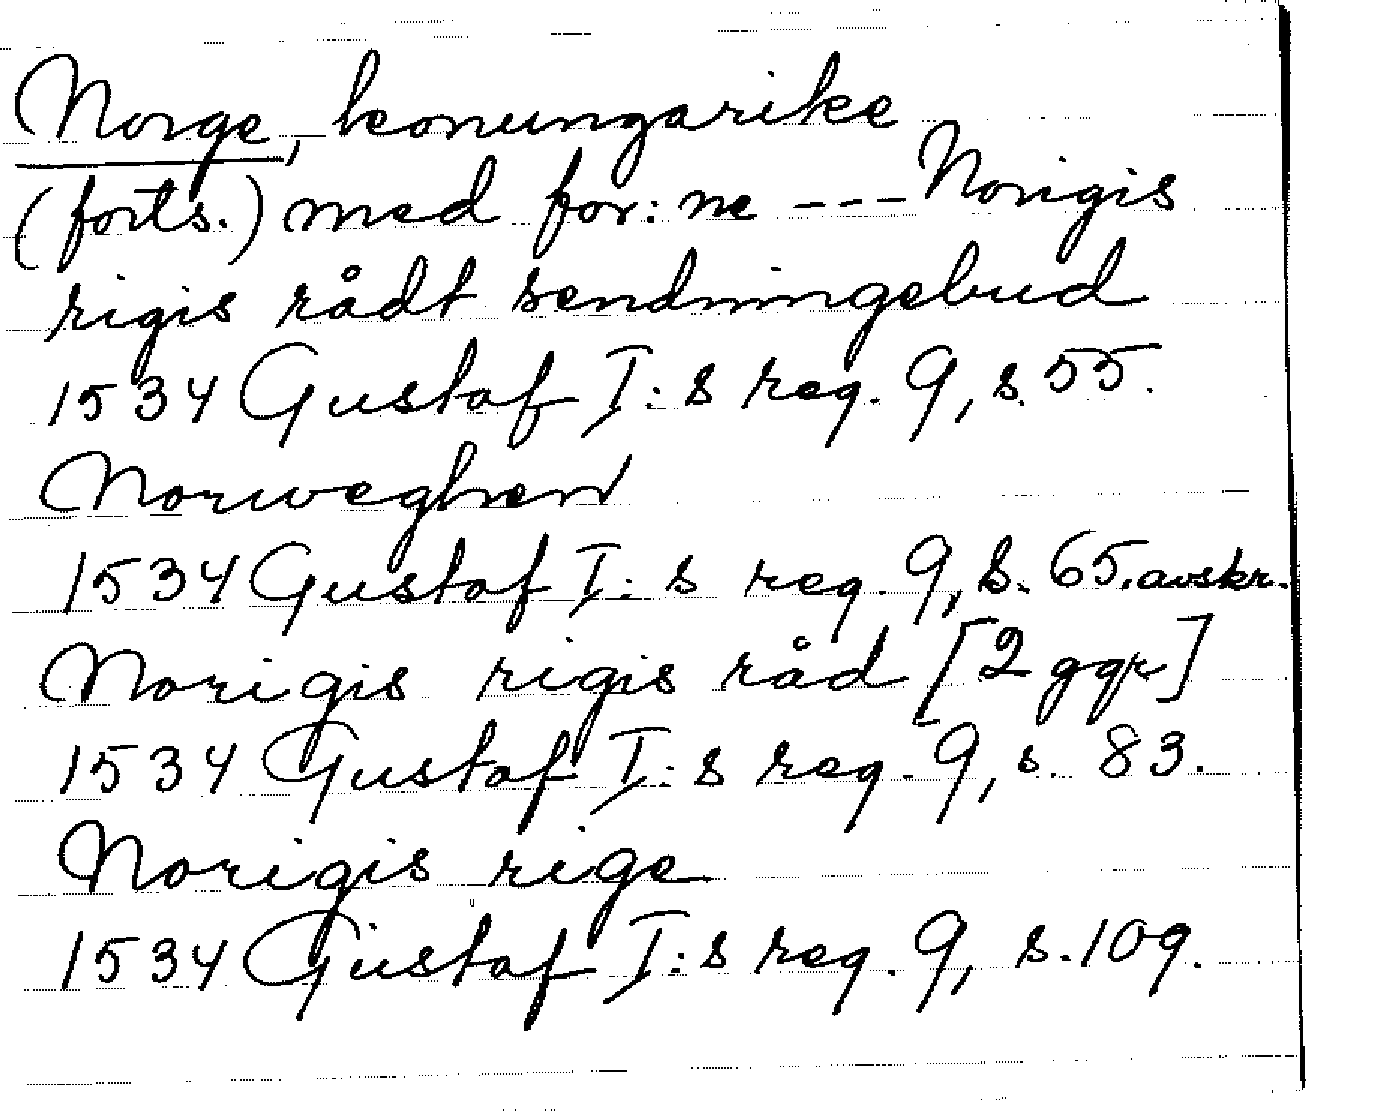 Norge, konungarike
(forts.) med for: ne --- Norigis
rigis rådt sendningebud
1534 Gustaf I:s reg. 9, s. 55.
Norweghen
1534 Gustaf I:s reg. 9, s. 65. avskr.
Norigis rigis råd [2 ggr]
1534 Gustaf I:s reg. 9, s. 83.
Norigis rige
1534 Gustaf I:s reg. 9, s. 109.